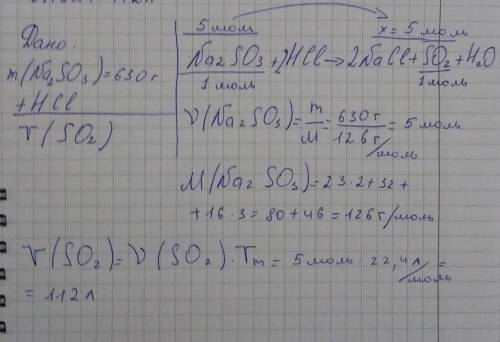 Дано:
m(Na2SO3)=630г
+HCl
V(SO2)
5 моль x = 5 моль
Na2SO3 + 2HCl → 2NaCl + SO2 + H2O
1 моль 1 моль
ν(Na2SO3) = m/M = 630 г/126 г/моль = 5 моль
M(Na2SO3) = 23·2 + 32 +
+ 16·3 = 80 + 46 = 126 г/моль
V(SO2) = ν(SO2) · Vm = 5 моль · 22,4 л/моль =
= 112 л